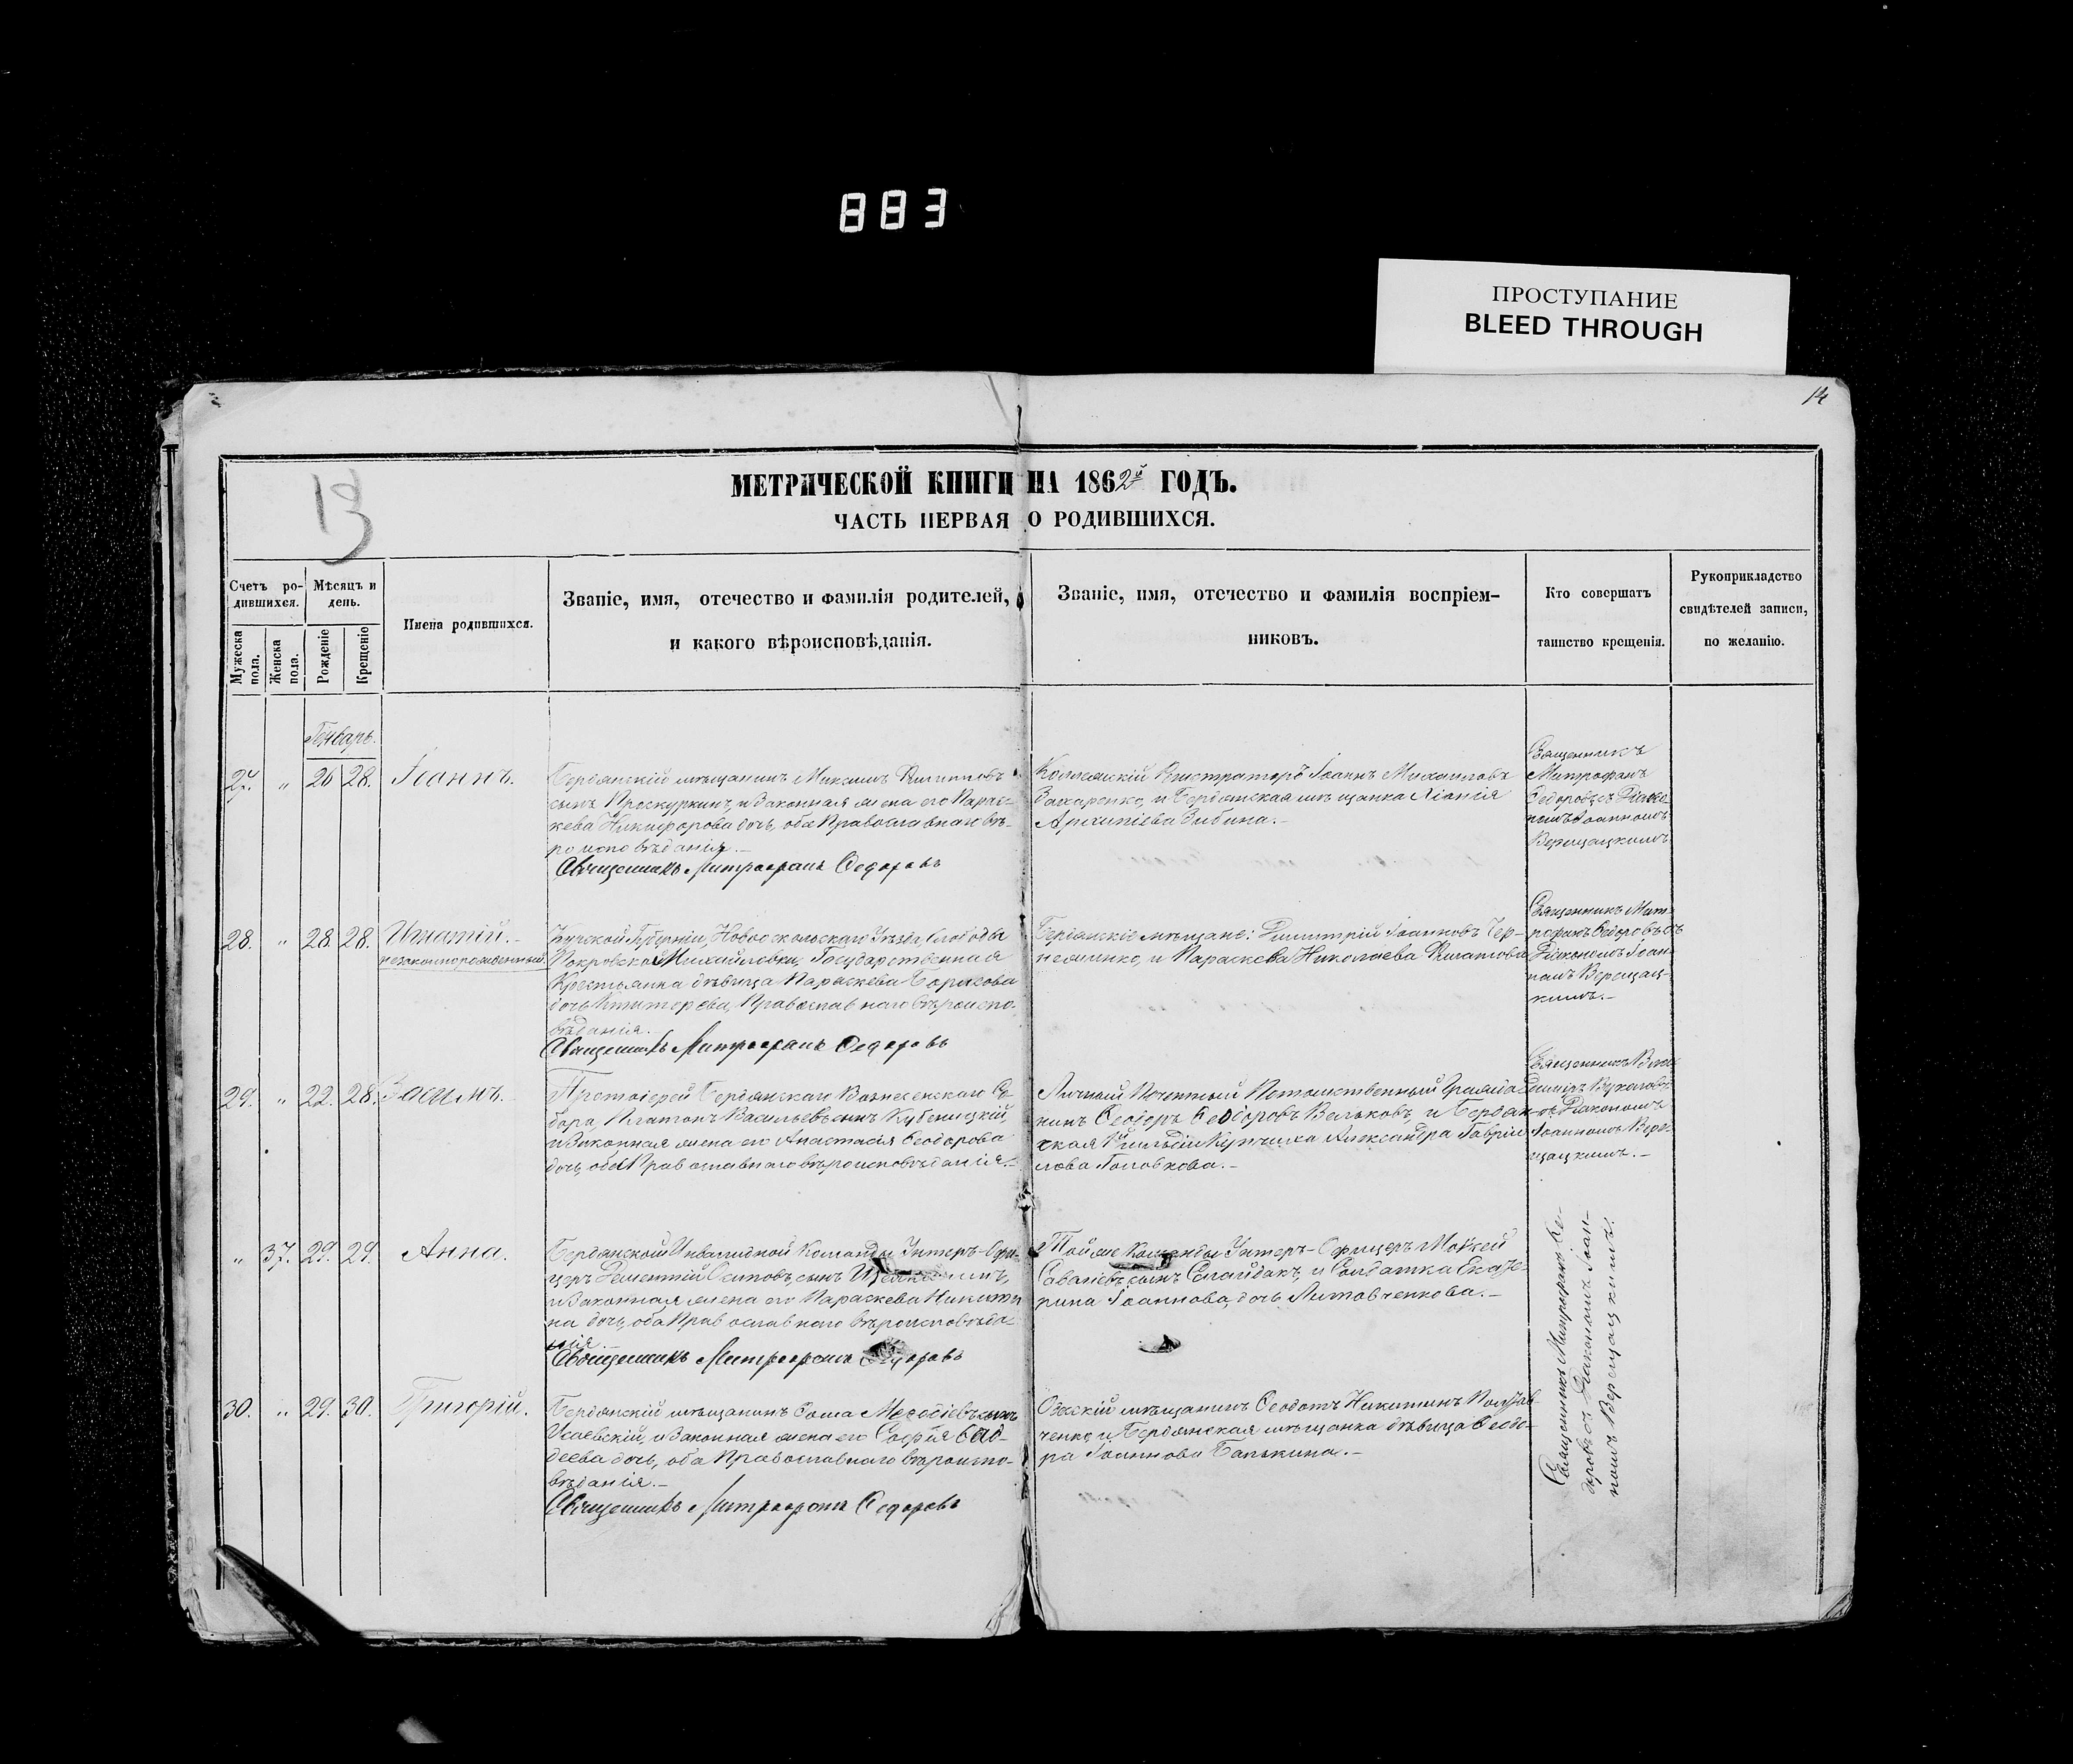 883
ПРОСТУПАНИЕ
BLEED THROUGH
14
13
МЕТРИЧЕСКОЙ КНИГИ НА 1862й ГОДЪ.
ЧАСТЬ ПЕРВАЯ О РОДИВШИХСЯ.
Счетъ ро-
дившихся.
Мѣсяцъ и
день.
Мужеска
пола.
Женска
пола.
Рожденіе
Крещеніе
Имена родившихся.
Званіе, имя, отечество и фамилія родителей,
и какого вѣроисповѣданія.
Званіе, имя, отечество и фамилія воспріем-
никовъ.
Кто совершатъ
таинство крещенія.
Рукоприкладство
свидѣтелей записи,
по желанію.
Генварь.
27. " 26 28. Іоаннъ.
Бердянскій мѣщанинъ Максимъ Филипповъ
сынъ Проскуркинъ, и Законная жена его Парас-
кева Никифорова дочь, оба Православнаго вѣ-
роисповѣданія.-
Священникъ Митрофанъ Федоровъ
Коллежскій Регистраторъ Іоаннъ Михаиловъ
Захаренко, и Бердянская мѣщанка
Архипіева Зибина.-
Священникъ
Митрофанъ
Федоровъ съ Діако-
номъ Іоанномъ
Верещацкимъ
28. " 28. 28. Игнатій.-
незаконнорожденный.
Курской Губерніи, Новооскольскаго Уѣзда, Слободы
Покровской Михайловки, Государственная
Крестьянка дѣвица Параскева Борисова
дочь Православнаго вѣроиспо-
вѣданія.-
Священникъ Митрофанъ Федоровъ
Бердянскіе мѣщане: Димитрій Іоанновъ Чер-
неженко, и Параскева Николаева
Священникъ Мит-
рофанъ Федоровъ съ
Діакономъ Іоан-
номъ Верещац-
кимъ.-
29. " 22. 28. Василъ.
Протоіерей Бердянскаго Вознесенскаго Со-
бора, Платонъ Васильевъ сынъ
и Законная жена его Анастасія Феодорова
дочь, оба Православнаго вѣроисповѣданія.-
Личный Почетный Потомственный Гражда-
нинъ Феодоръ Феодоровъ Вельковъ, и Бердян-
ская гильдіи Купчиха Александра Гаврии-
лова Головкова.-
Священникъ Вла-
диміръ
съ Діакономъ
Іоанномъ Вере-
щацкимъ.-
" 37. 29. 29. Анна.
Бердянской Инвалидной Команды Унтеръ-Офи-
церъ Дементій Осиповъ сынъ
и Законная жена его Параскева Никити-
на дочь, оба Православнаго Вѣроисповѣда-
нія.-
Священникъ Митрофанъ Федоровъ
Той же Команды Унтеръ-Офицеръ Мокей
Саваліевъ сынъ и Солдатка Екате-
рина Іоаннова дочь Литовченкова.-
Священникъ Митрофанъ Фе-
доровъ съ Діакономъ Іоан-
номъ Верещацкимъ.
30. " 29. 30. Григорій.
Бердянскій мѣщанинъ Фома Меѳодіевъ сынъ
Исаевскій, и Законная жена его Софія Фад-
деева дочь, оба Православнаго вѣроиспо-
вѣданія.-
Священникъ Митрофанъ Федоровъ
Одесскій мѣщанинъ Феодотъ Никитинъ
ченко, и Бердянская мѣщанка дѣвица Феодо-
ра Іоаннова Балыкина.-